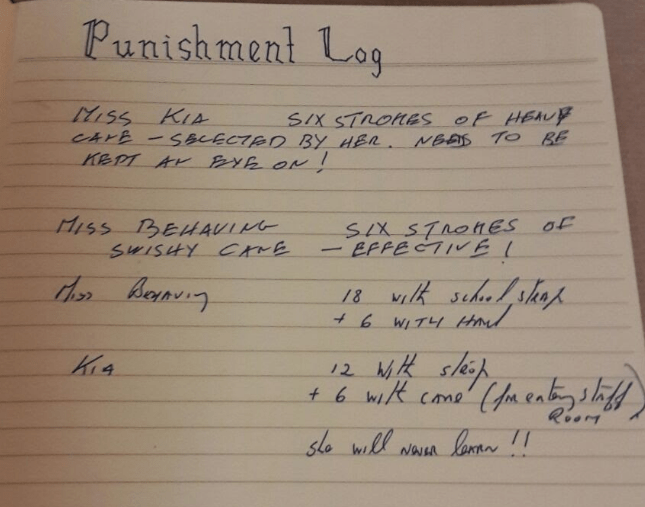 Punishment Log
MISS KIA SIX STROKES OF HEAVY
CANE - SELECTED BY HER. NEEDS TO BE
KEPT AN EYE ON!
MISS BEHAVING SIX STROKES OF
SWISHY CANE - EFFECTIVE!
Miss Behaving 18 with school strap
+ 6 WITH HAND
KIA 12 with strap
+ 6 with cane (for entering staff
ROOM)
she will never learn!!